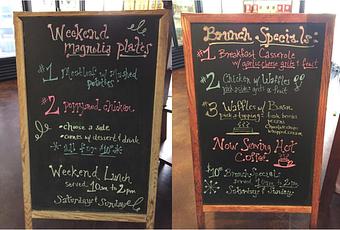 Weekend
magnolia plates
#1 Meatloaf w/ Mashed
potatoes
#2 Poppyseed chicken
• choose a side
• comes w/ dessert & drink
* all for $10 *
Weekend Lunch
served 10am to 2pm
Saturday & Sunday
Brunch Specials:
#1 Breakfast Casserole
w/ garlic cheese grits & fruit
#2 Chicken w/ Waffles
grits & fruit
#3 Waffles w/ Bacon
pick a topping:
pecans
chocolate chips
Now Serving Hot
Coffee
$10 Brunch Specials
served 10am to 2pm
Saturday & Sunday